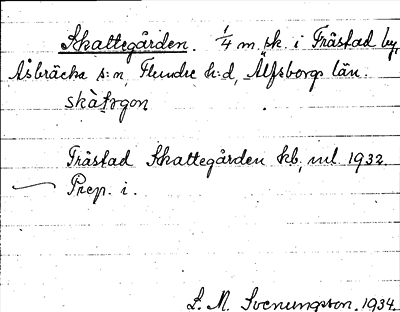 Skattegården. 1/4 m. sk. i Fråstad by,
Åsbräcka s:n, Flundre h:d, Älfsborgs län.
skàt̨gon
Fråstad Skattegården kb, inl. 1932.
Prep. i.
L. M. Svenungsson. 1934.